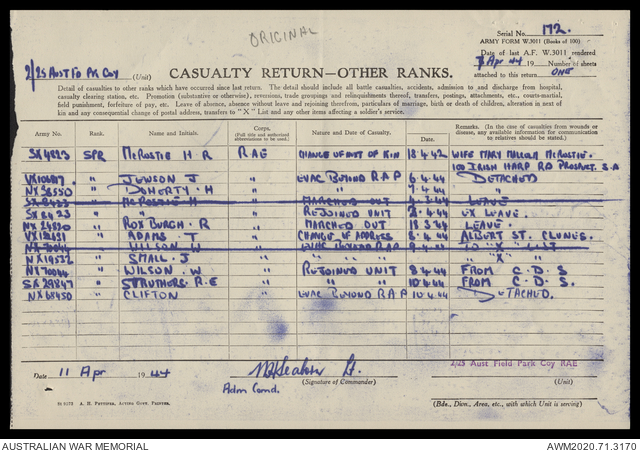 ORIGINAL
Serial No. 172.
ARMY FORM W.3011 (Books of 100)
Date of last A.F. W.3011 rendered
7 Apr 44 19 Number of sheets
attached to this return ONE
2/25 AUST FD PK COY (Unit)
CASUALTY RETURN—OTHER RANKS.
Detail of casualties to other ranks which have occurred since last return. The detail should include all battle casualties, accidents, admission to and discharge from hospital,
casualty clearing station, etc. Promotion (substantive or otherwise), reversions, trade groupings and relinquishments thereof, transfers, postings, attachments, etc., courts-martial,
field punishment, forfeiture of pay, etc. Leave of absence, absence without leave and rejoining therefrom, particulars of marriage, birth or death of children, alteration in next of
kin and any consequential change of postal address, transfers to "X" List and any other items affecting a soldier's service.
Army No. Rank. Name and Initials. Corps. (Full title and authorized abbreviations to be used). Nature and Date of Casualty. Date. Remarks. (In the case of casualties from wounds or disease, any available information for communication to relatives should be stated.)
SX4823 SPR McROSTIE H R RAE CHANGE OF NXT OF KIN 18.4.42 WIFE MARY
100 IRISH HARP RD PROSPECT. S.A
" JEWSON J " EVAC BEYOND RAP 6.4.44 DETACHED
NX38550 " DOHERTY. H " " 7.4.44 "
" McROSTIE H " MARCHED OUT LEAVE
" " " REJOINED UNIT .4.44 EX LEAVE.
NX24820 " ROXBURGH. R " MARCHED OUT 18.3.44 LEAVE.
" ADAMS. T " CHANGE OF ADDRESS 8.4.44 ALBERT ST. CLUNES.
NX70044 " WILSON W " EVAC BEYOND RAP TO "X" LIST
NX19532 " SMALL. J " " " " .4.44 " "X" "
NX70044 " WILSON. W " REJOINED UNIT 8.4.44 FROM C.D.S
SX29847 " STRUTHERS. R.E " " " 10.4.44 FROM C.D.S.
NX68450 " CLIFTON " EVAC BEYOND RAP 10.4.44 DETACHED.
Date 11 Apr 1944
Lt.
(Signature of Commander)
Adm Comd.
2/25 Aust Field Park Coy RAE
(Unit)
A. H. PETTIFER, ACTING GOVT. PRINTER.
(Bde., Divn., Area, etc., with which Unit is serving)
AUSTRALIAN WAR MEMORIAL
AWM2020.71.3170